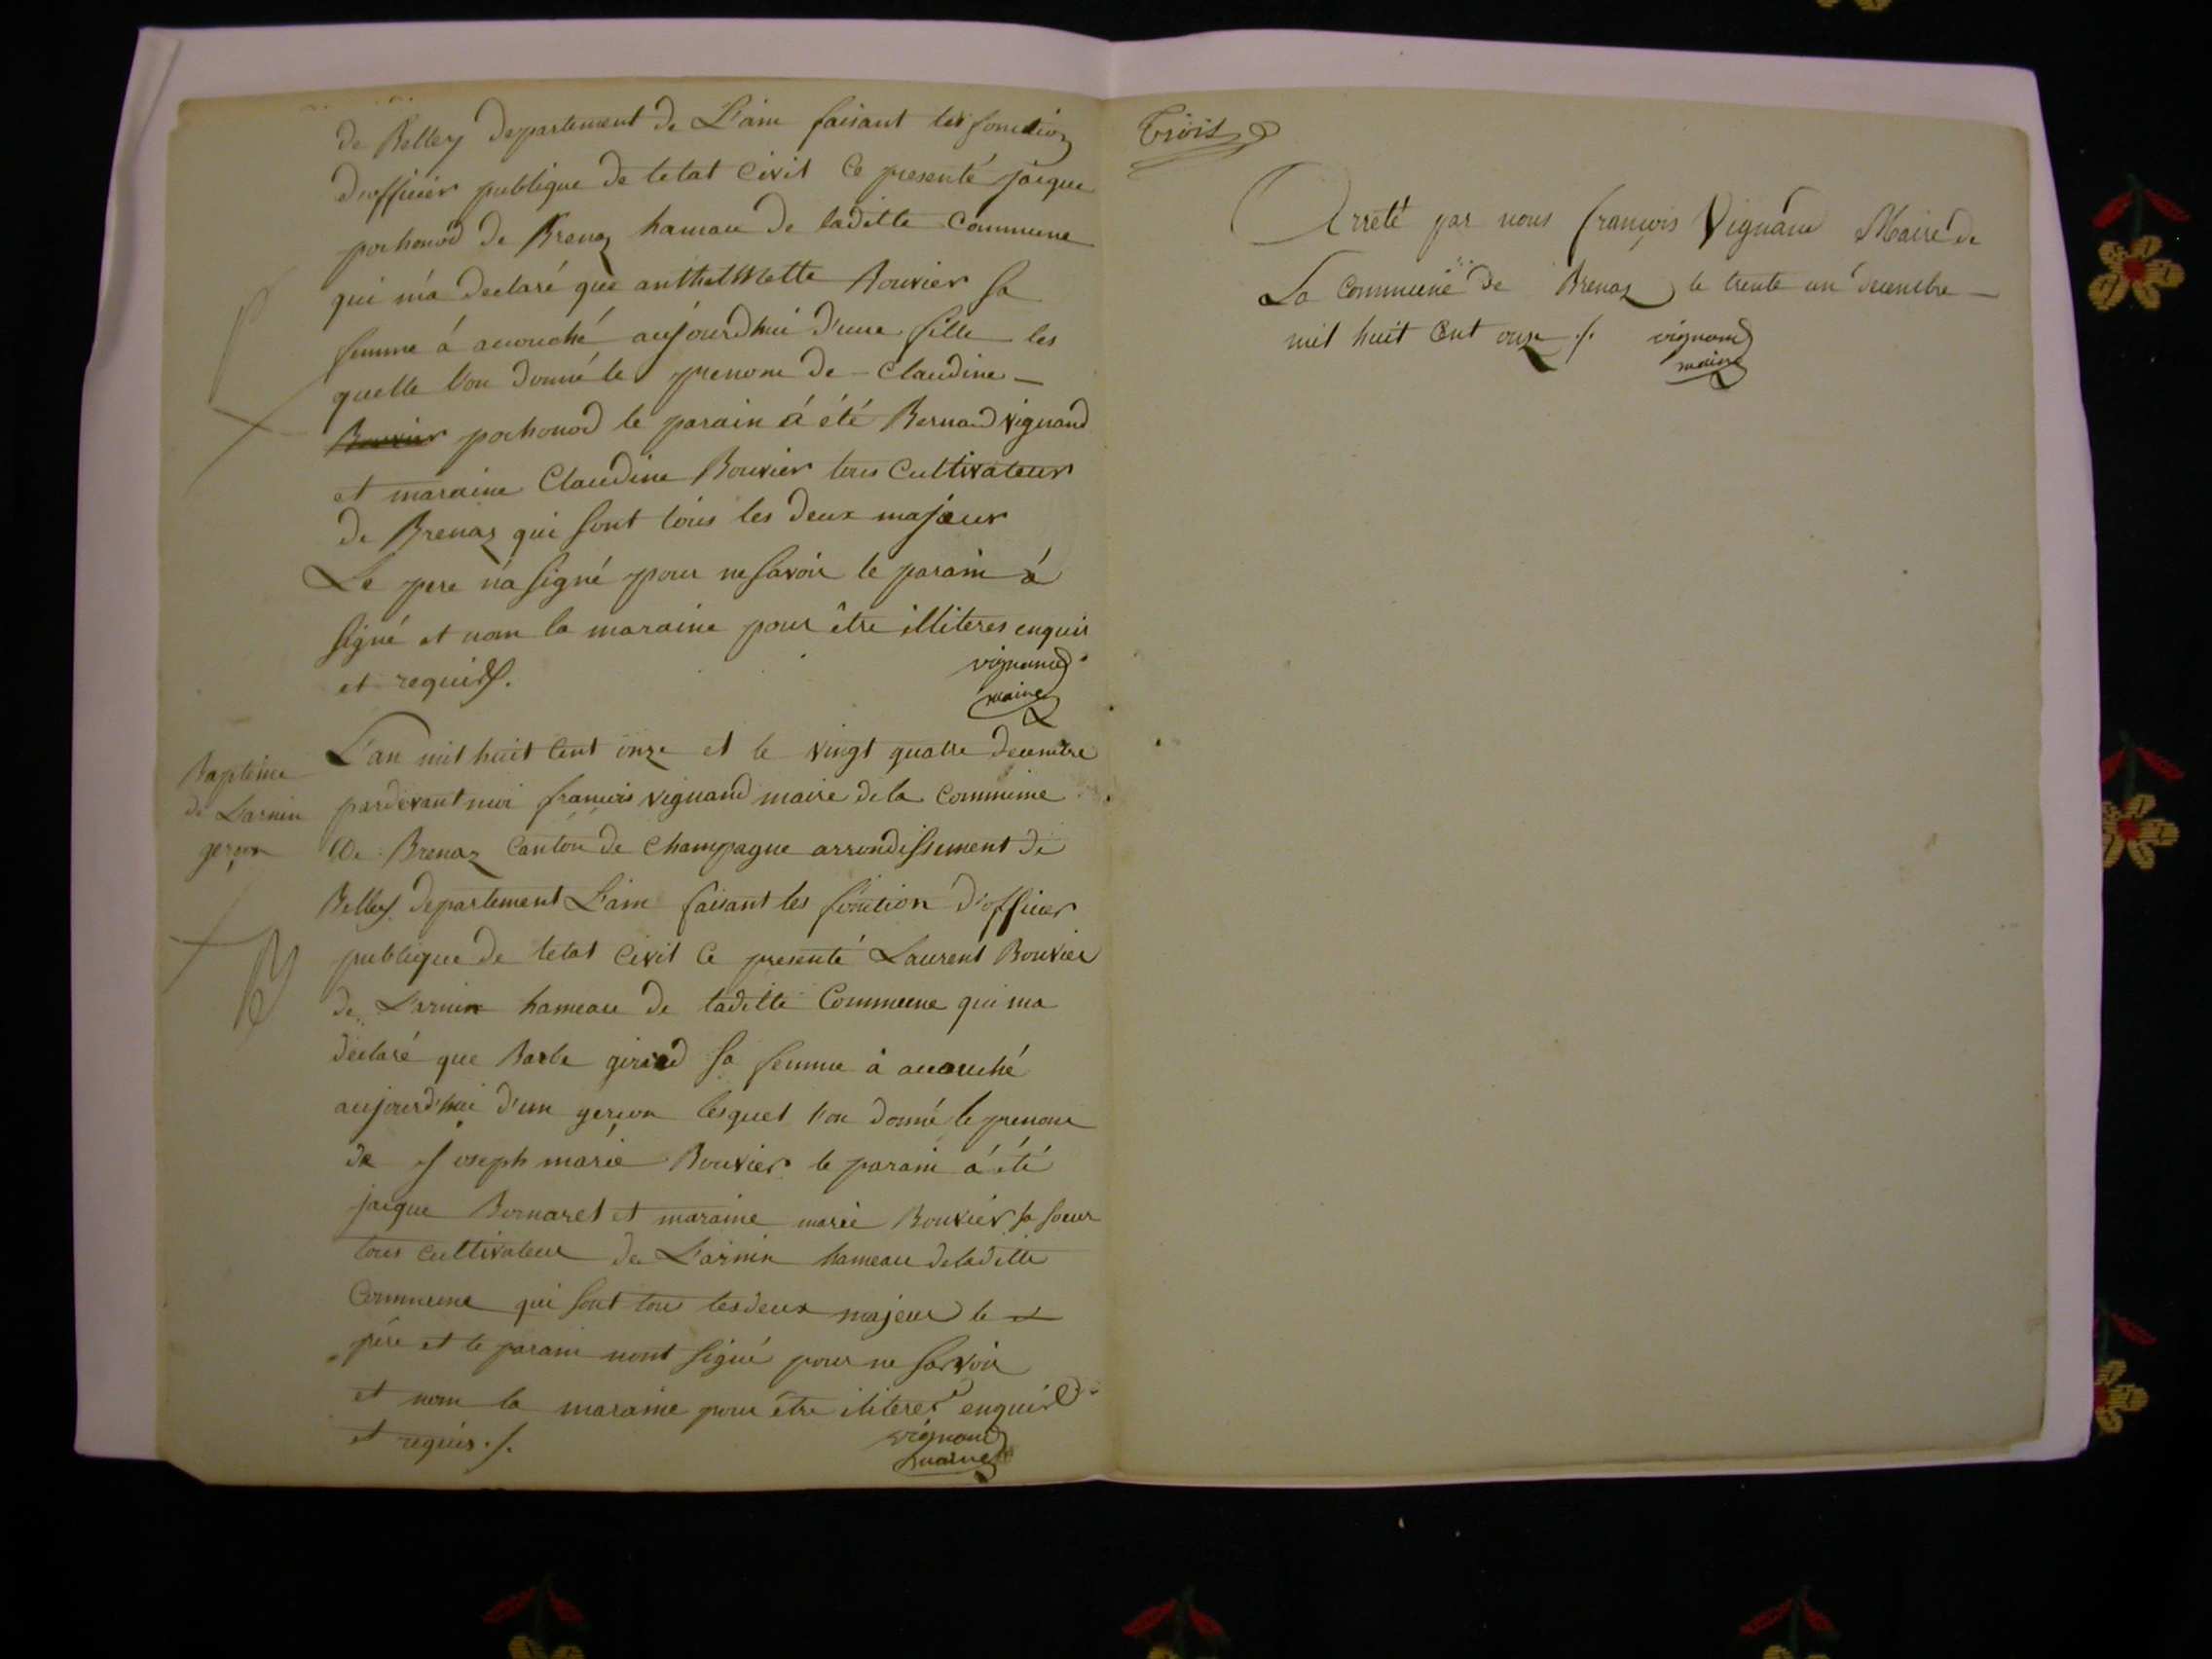 de Belley departement de L'ain faisant les fonction
d'officier publique de letat Civil Ce presenté jacque
pochonod de Brenaz hamau de laditte Commune
qui m'a declaré que anthelmette Bouvier sa
femme á accouché aujourdhui d'une fille les
quelle l'on donné le prenom de - Claudine -
Bouvier pochonod le parain á été Bernard vignand
et maraine Claudine Bouvier tous Cultivateur
de Brenaz qui sont tous les deux majeur
Le pere n'a signé pour ne savoir le parain á
signé et nom la maraine pour être illiteres enquis
et requis ./.
vignand
maire
Baptéme
de Larnin
gerçon
L'an mil huit Cent onze et le vingt quatre decembre
pardevant moi francois vignand maire de la Commune
De Brenaz Canton de Champagne arrondissement de
Belley departement L'ain faisant les fonction d'officier
publique de letat Civil Ce presenté Laurent Bouvier
de Larnin hameau de laditte Commune qui ma
declaré que Barbe girard sa femme á accouché
aujourd'hui d'un gercon lesquel l'on donné le prenom
de Joseph marie Bouvier le parain á été
jacque Bernaret et maraine marie Bouvier sa soeur
tous cultivateur de Larnin hameau deladitte
Commune qui sont tous les deux majeur le
pére et le parain nont signé pour ne savoir
et nom la maraine pour être iliteres enquis
et requis ./.
vignand
maire
Trois
Arreté par nous françois Vignand Maire de
La Commune de Brenaz le trente un decembre
mil huit Cent onze ./.
vignand
maire